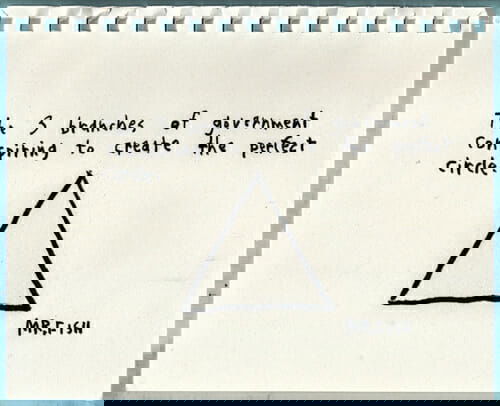 The 3 branches of government
conspiring to create the perfect
circle.
MR. FISH